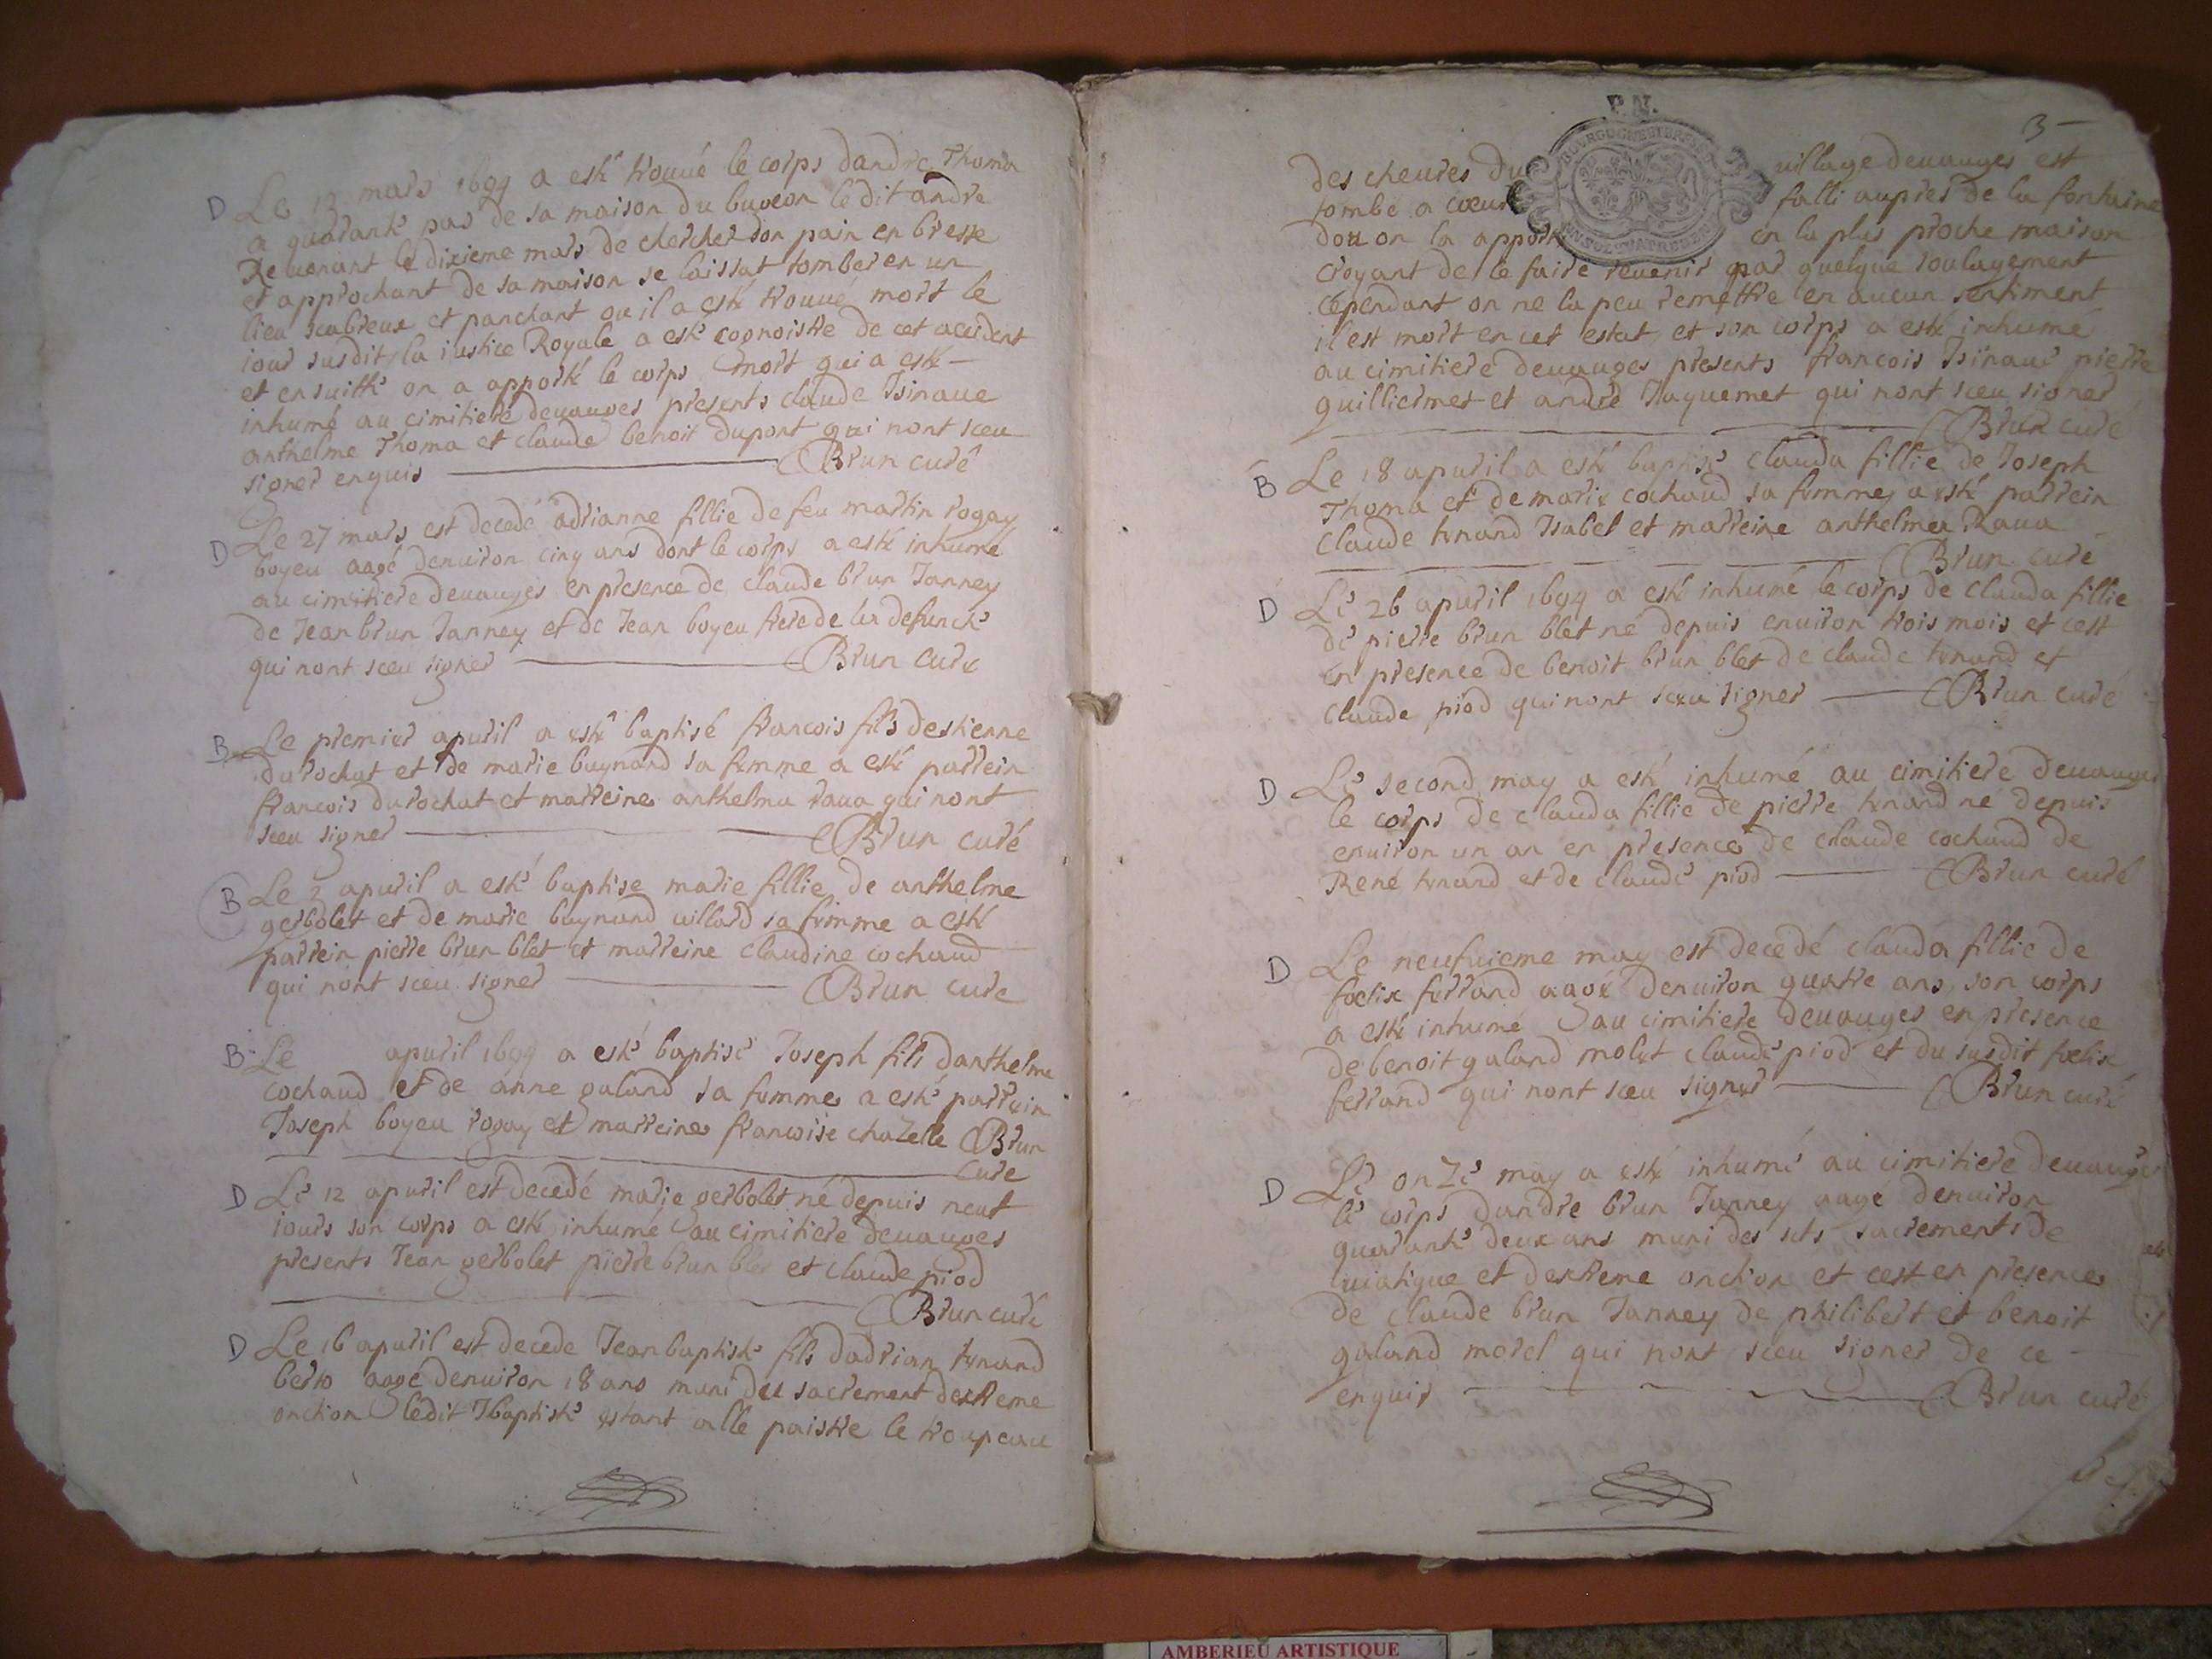 D Le 12 mars 1694 a esté trouvé le corps dandre Thoma
a quarante pas de sa maison du bugeon ledit andre
Revenant le dixieme mars de chercher son pain en bresse
et approchant de sa maison se laissat tomber en un
lieu scabreux et panchant ou il a esté trouué mort le
iour susdit la iustice Royale a esté cognoistre de cet accident
et ensuitte on a apporté le corps mort qui a esté
inhumé au cimitiere deuauges presents claude Isinaue
anthelme Thoma et claude benoit dupont qui nont sceu
signer enquis Brun curé
D Le 27 mars est decedé adrianne fillie de feu martin rogay
boyeu aagé denuiron cinq ans dont le corps a esté inhumé
au cimitiere deuauges en presence de claude brun Janney
de Jean brun Janney et de Jean boyeu frere de la defuncte
qui nont sceu signer Brun curé
B Le premier apuril a esté baptisé francois fils destienne
durochat et de marie buynand sa femme a esté parrein
francois durochat et marreine anthelma raua qui nont
sceu signer Brun curé
B Le 3 apuril a esté baptise marie fillie de anthelme
gerbolet et de marie buynand uillard sa femme a esté
parrein pierre brun blet et marreine claudine cochaud
qui nont sceu signer Brun cure
B Le apuril 1694 a esté baptisé Joseph fils danthelme
cochaud et de anne galand sa femme a esté parrein
Joseph boyeu rogay et marreine francoise chazelle Brun
cure
D Le 12 apuril est decedé marie gerbolet né depuis neuf
iours son corps a esté inhumé au cimitiere deuauges
presents Jean gerbolet pierre brun blet et claude piod
Brun curé
D Le 16 apuril est decede Jean baptiste fils dadrian tenand
berro aagé denuiron 18 ans muni du sacrement dextreme
onction ledit Jbaptiste estant alle paistre le troupeau
3
P. N.
des cheures du uillage deuauges est
tombe a coeur falli aupres de la fontaine
dou on la apporté en la plus proche maison
croyant de le faire reuenir par quelque soulagement
cependant on ne la peu remettre en aucun sentiment
il est mort en cet estat et son corps a esté inhumé
au cimitiere deuauges presents francois Isinaue pierre
guilliermet et andré Jaquemet qui nont sceu signer
Brun curé
B Le 18 apuril a esté baptisé clauda fillie de Joseph
Thoma et de marie cochaud sa femme a esté parrein
claude tenand Isabel et marreine anthelme Raua
Brun curé
D Le 26 apuril 1694 a esté inhumé le corps de clauda fillie
de pierre brun blet né depuis enuiron trois mois et cest
en presence de benoit brun blet de claude tenand et
claude piod qui nont sceu signer Brun curé
D Le second may a esté inhumé au cimitiere deuauges
le corps de clauda fillie de pierre tenand né depuis
enuiron un an en presence de claude cochaud de
René tenand et de claude piod Brun curé
D Le neufuieme may est decedé clauda fillie de
foelix ferrand aagé denuiron quatre ans, son corps
a esté inhumé au cimitiere deuauges en presence
de benoit galand molet claude piod et du susdit foelix
ferrand qui nont sceu signer Brun curé
D Le onze may a esté inhumé au cimitiere deuauges
le corps dandre brun Janney aagé denuiron
quarante deux ans muni des sts sacrements de
uiatique et dextreme onction et cest en presence
de claude brun Janney de philibert et benoit
galand morel qui nont sceu signer de ce
enquis Brun curé
AMBERIEU ARTISTIQUE